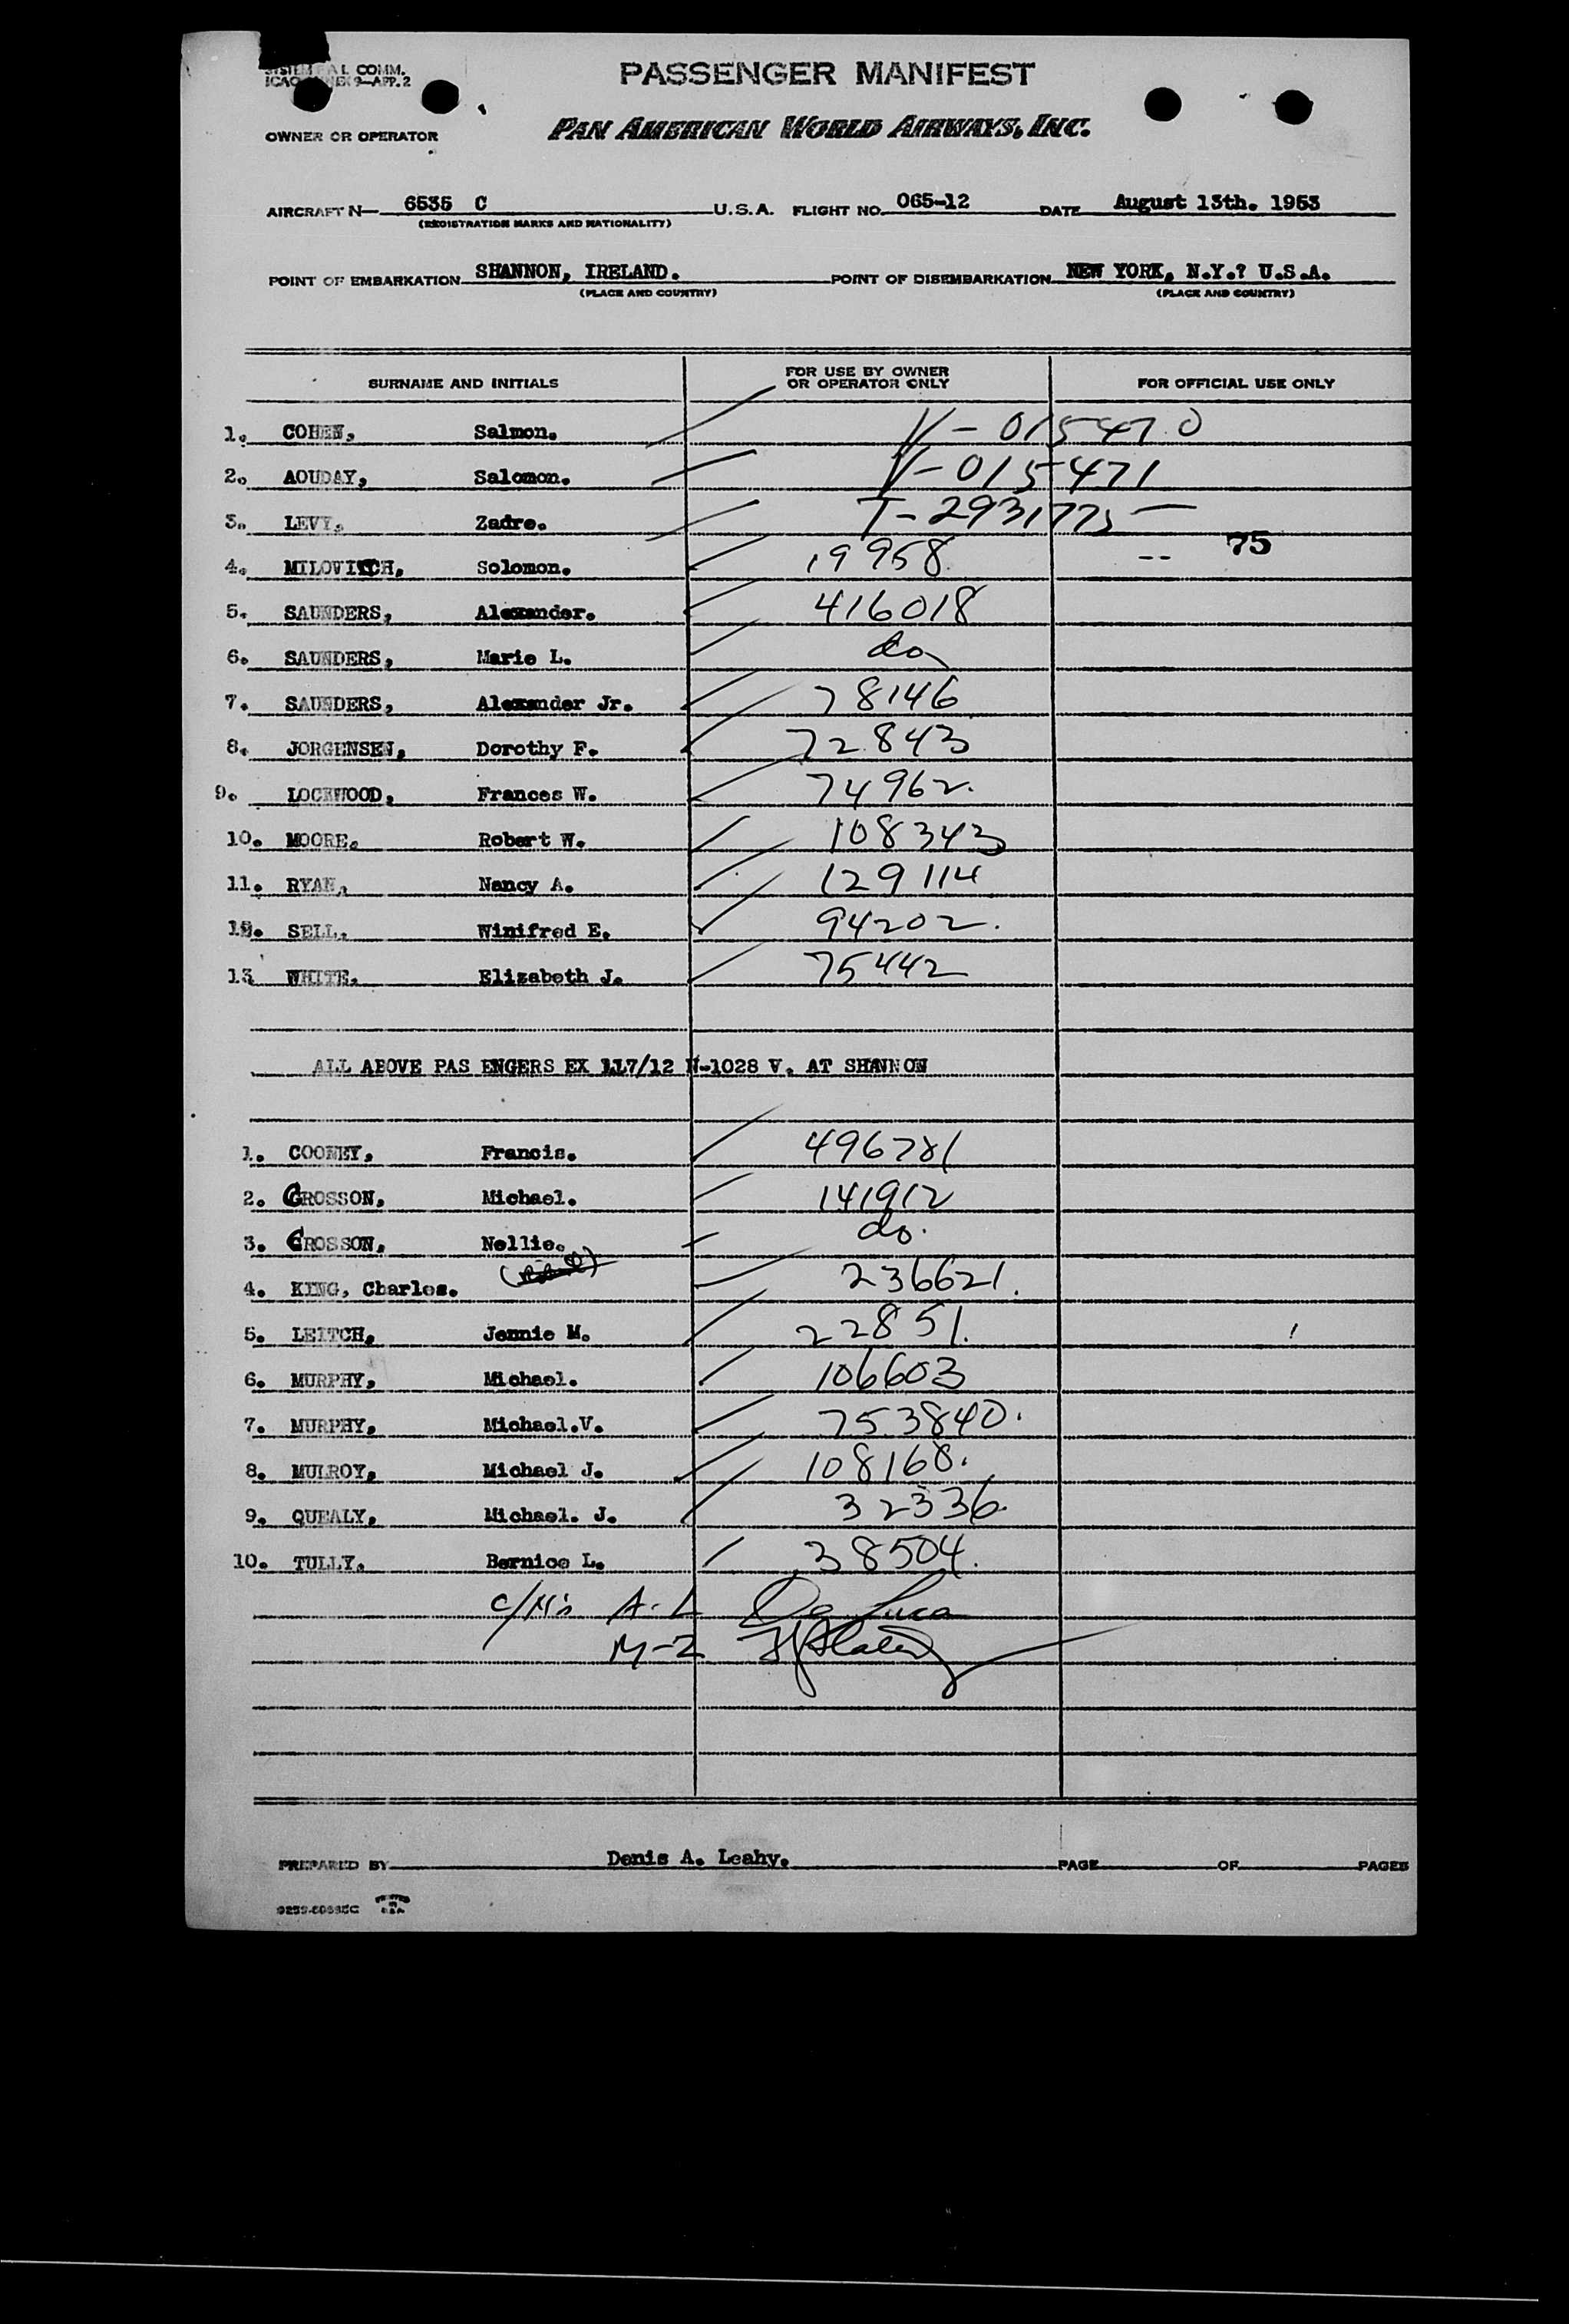 COMM.
ICAO ANNEX 9—APP. 2
PASSENGER MANIFEST
OWNER OR OPERATOR PAN AMERICAN WORLD AIRWAYS, INC.
AIRCRAFT N— 6535 C U.S.A. FLIGHT NO. 065-12 DATE August 13th. 1953
(REGISTRATION MARKS AND NATIONALITY)
POINT OF EMBARKATION SHANNON, IRELAND. POINT OF DISEMBARKATION NEW YORK, N.Y.? U.S.A.
(PLACE AND COUNTRY) (PLACE AND COUNTRY)
SURNAME AND INITIALS FOR USE BY OWNER OR OPERATOR ONLY FOR OFFICIAL USE ONLY
1. COHEN, Salmon. V-015470
2. AOUDAY, Salomon. V-015471
3. LEVY, Zadre. T-2931775 —
4. MILOVITCH, Solomon. 19958 -- 75
5. SAUNDERS, Alexander. 416018
6. SAUNDERS, Marie L. do
7. SAUNDERS, Alexander Jr. 78146
8. JORGENSEN, Dorothy F. 72843
9. LOCKWOOD, Frances W. 74962.
10. MOORE, Robert W. 108343
11. RYAN, Nancy A. 129114
12. SELL, Winifred E. 94202.
13 WHITE, Elizabeth J. 75442
ALL ABOVE PAS ENGERS EX 117/12 N-1028 V. AT SHANNON
1. COONEY, Francis. 496781
2. CROSSON, Michael. 141912
3. CROSSON, Nellie. do.
4. KING, Charles. 236621.
5. LEITCH, Jennie M. 22851.
6. MURPHY, Michael. 106603
7. MURPHY, Michael.V. 753840.
8. MULROY, Michael J. 108168.
9. QUEALY, Michael. J. 32336.
10. TULLY, Bernice L. 38504.
A-L De Luca
M-2
PREPARED BY Denis A. Leahy. PAGE OF PAGES
PRINTED IN U.S.A.